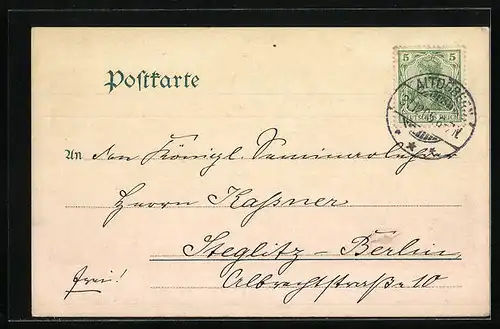 5 5
DEUTSCHES REICH
ALTDÖBERN
Postkarte
An den Königl. Seminarlehrer
Herrn Kaßner
Steglitz - Berlin
frei!
Albrechtstraße 10